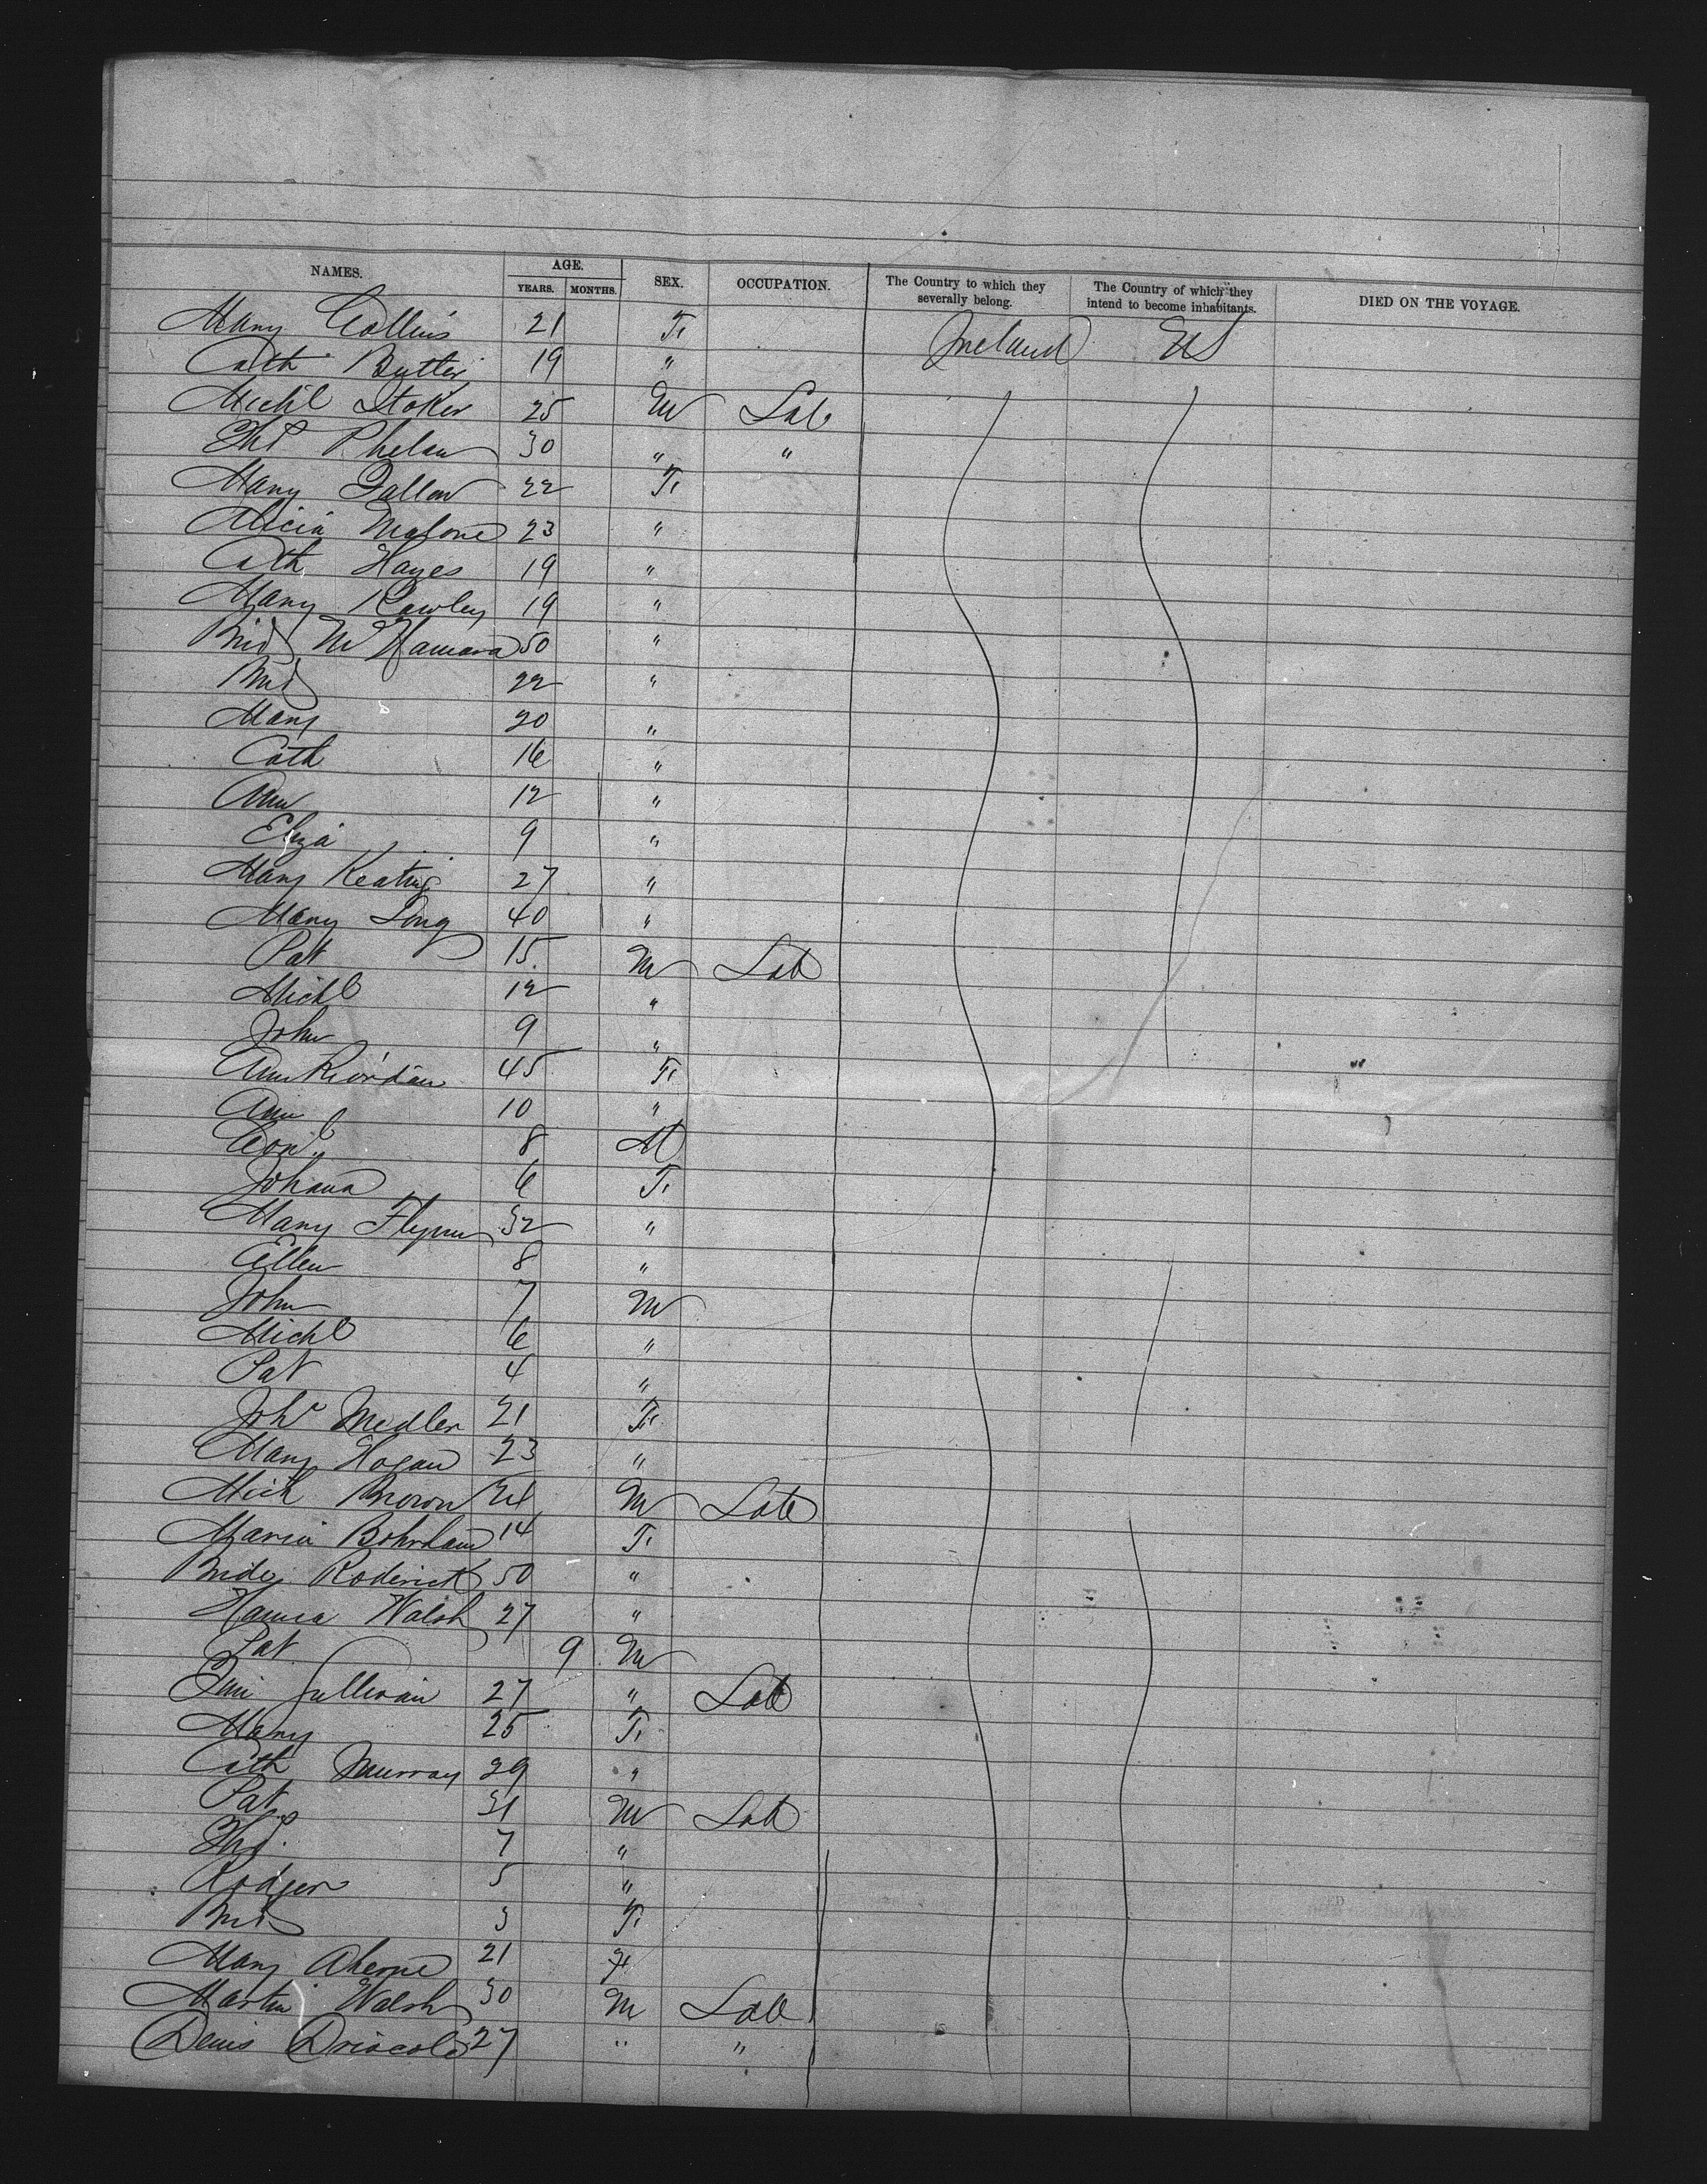 NAMES. AGE. SEX. OCCUPATION. The Country to which they severally belong. The Country of which they intend to become inhabitants. DIED ON THE VOYAGE.
YEARS. MONTHS.
Mary Collins 21 F. Ireland US
Cath Butler 19 "
Michl Stokes 25 M Lab
Thos Phelan 30 " "
Mary Fallon 22 F.
Alicia Malone 23 "
Cath Hayes 19 "
Mary Rowley 19 "
Brid McNamara 50 "
Brid 22 "
Mary 20 "
Cath 16 "
Ann 12 "
Eliza 9 "
Mary Keating 27 "
Mary Long 40 "
Pat 15 M Lab
Michl 12 "
John 9 "
Ann Riordan 45 F.
Ann 10 "
Corn. 8 M
Johana 6 F.
Mary Flynn 32 "
Ellen 8 "
John 7 M
Michl 6 "
Pat 4 "
Joha Medler 21 F.
Mary Hogan 23 "
Mich Brown 24 M Lab
Maria 14 F.
Bridg Roderick 50 "
Hanna Walsh 27 "
Pat 9 M
Tim Sullivan 27 " Lab
Mary 25 F.
Cath Murray 29 "
Pat 31 M Lab
Thos. 7 "
Rodger 5 "
Brid 3 F.
Mary Aherne 21 F
Martin Walsh 30 M Lab
Denis Driscoll 27 " "